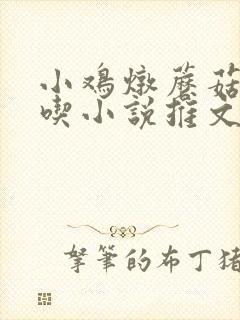 小鸡燉蘑菇
喫小説推文
拏筆的布丁猪